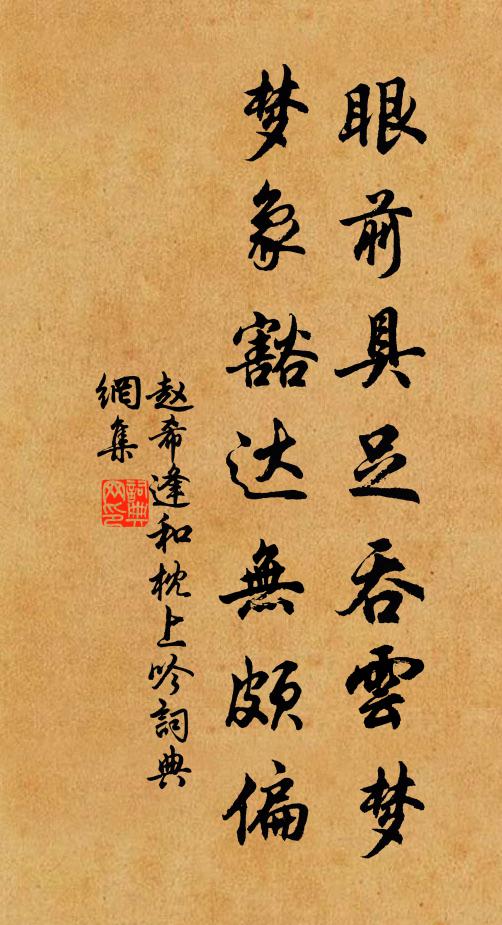 眼前具足吞雲梦
梦象豁达無頗偏
赵希逢和枕上吟詞典
網集
詞典
网印